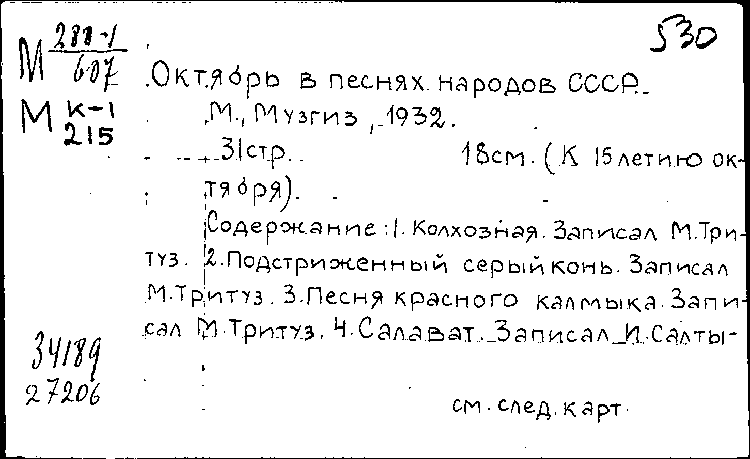 530
М 288-1/607
М К-1
215
Октябрь в песнях народов СССР.
М., Музгиз, 1932.
31стр. 18см. (К 15летию ок-
тября).
Содержание: 1. Колхозная. Записал М.Три-
туз. 2. Подстриженный серый конь. Записал
М.Тритуз. 3. Песня красного калмыка. Запи-
сал М.Тритуз. 4. Салават. Записал И.Салты-
34189
27206
см. след. карт.